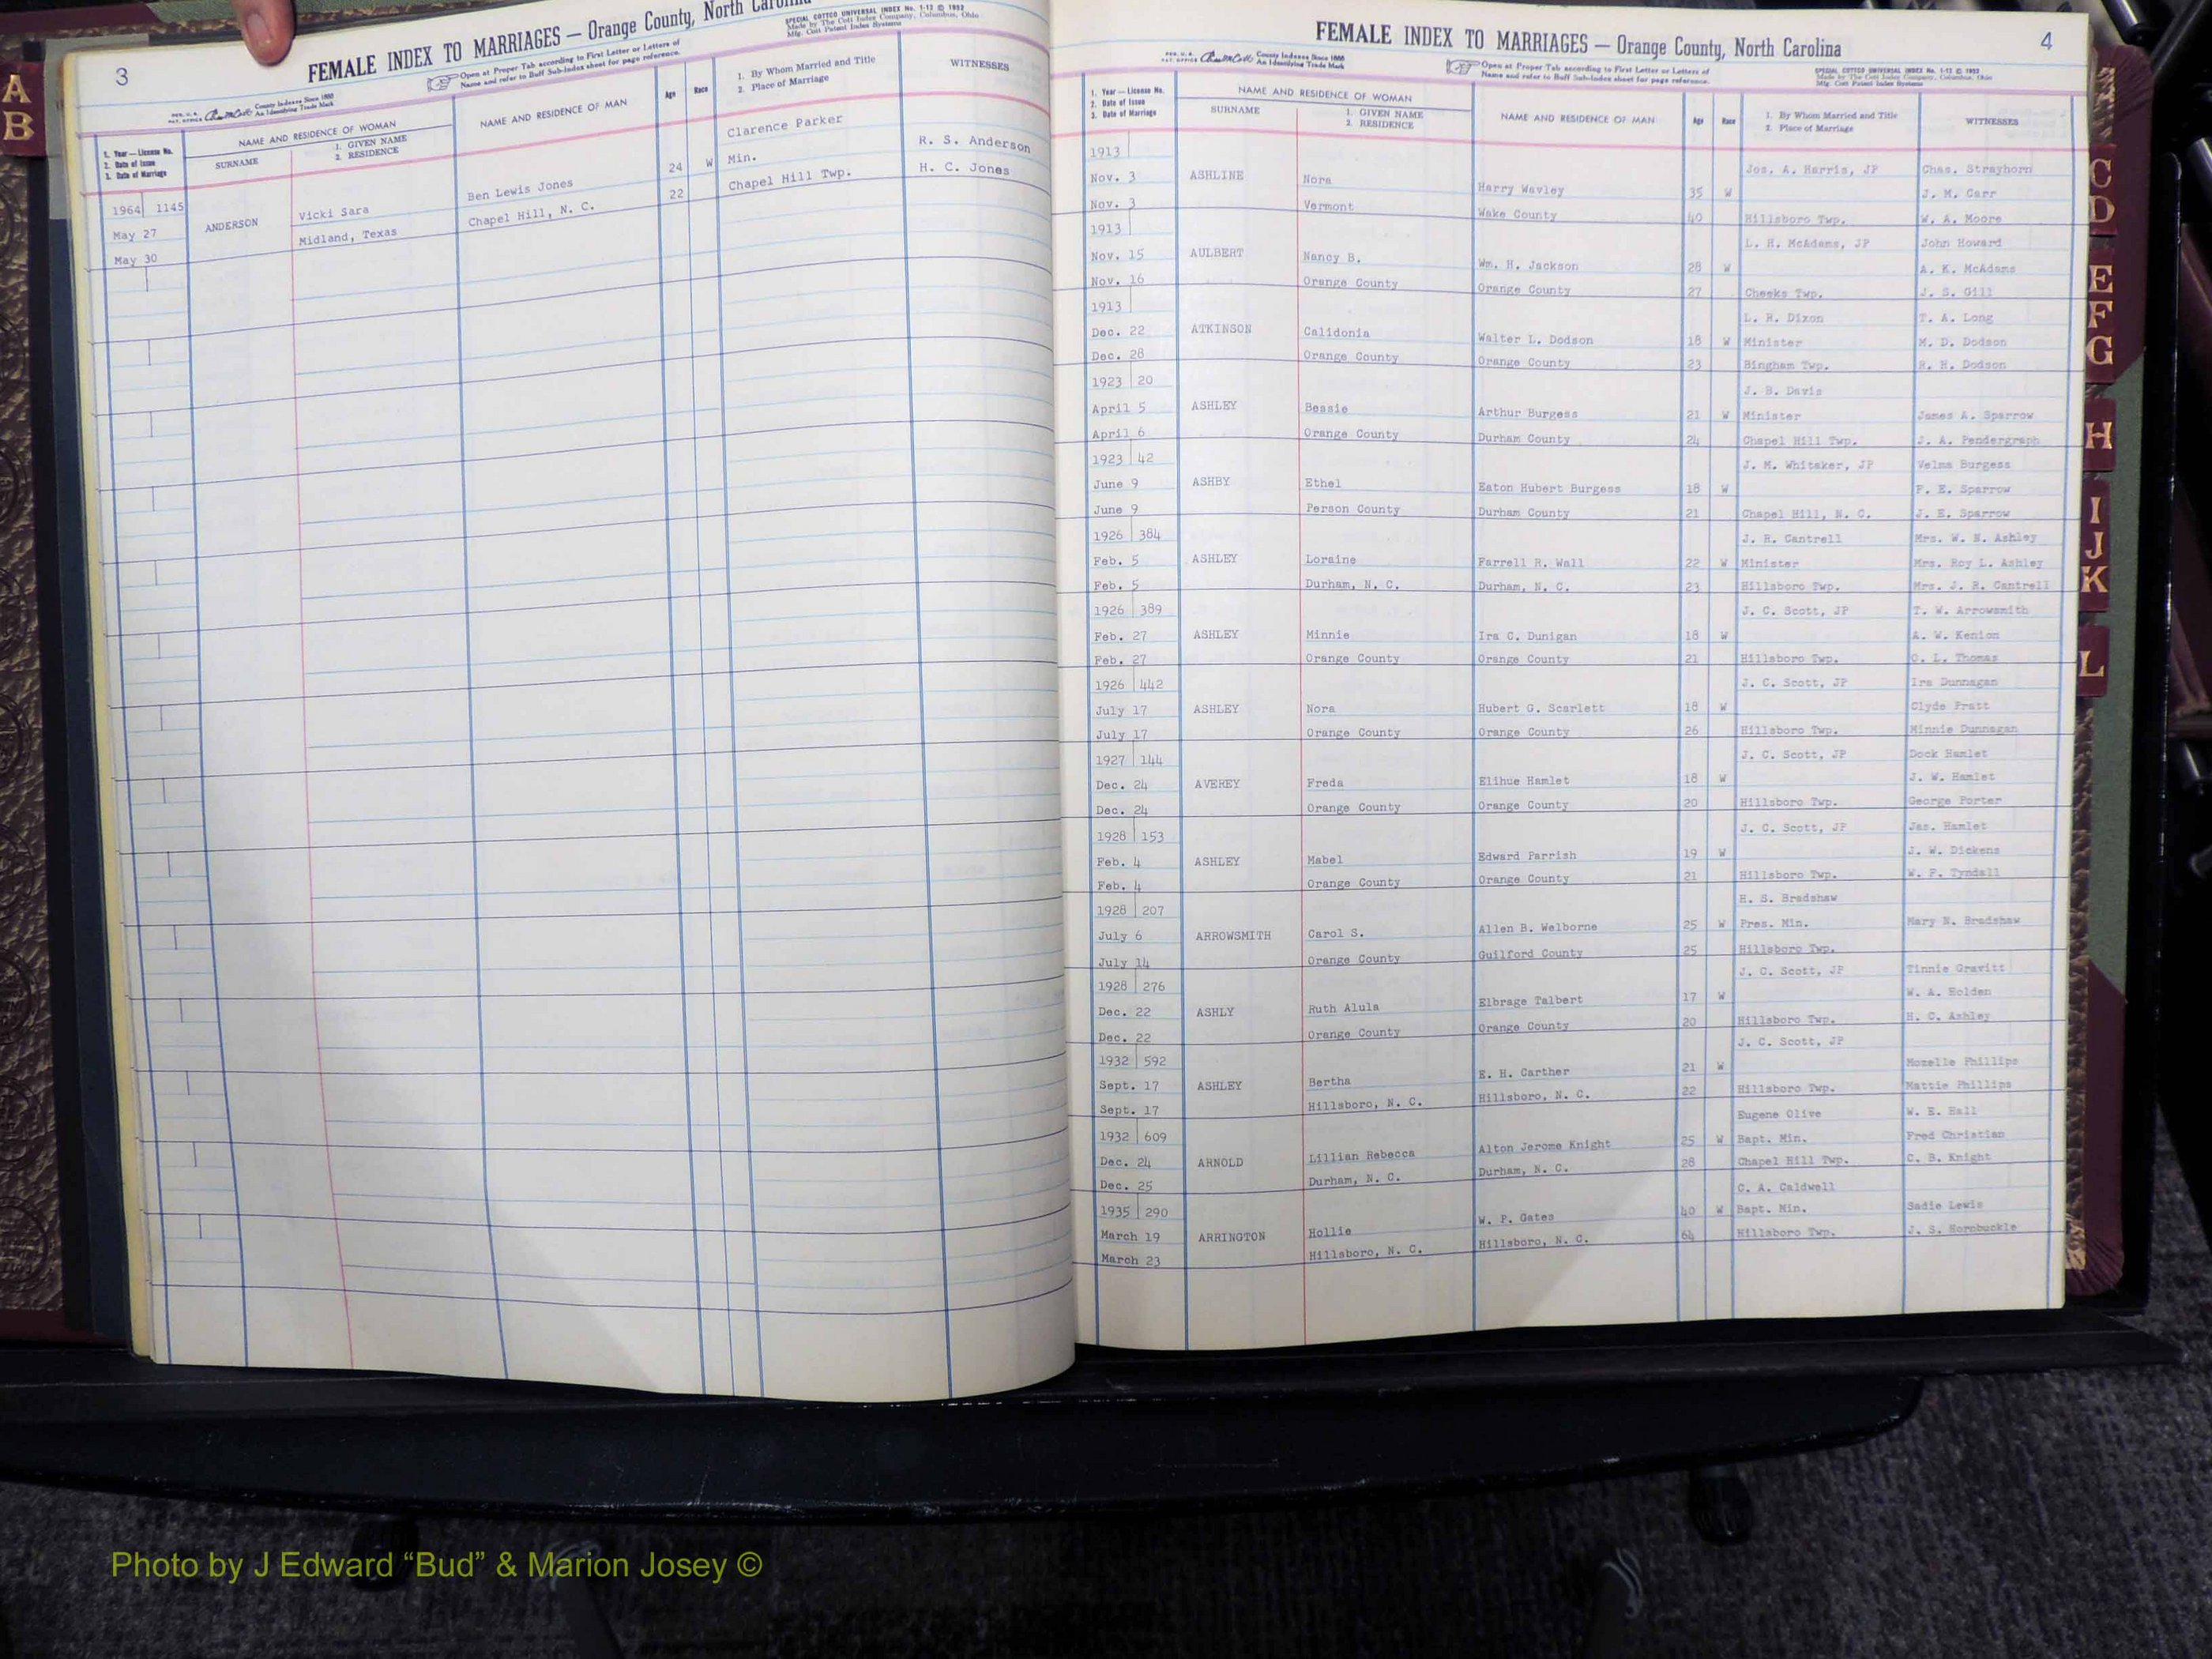 3
FEMALE INDEX TO MARRIAGES — Orange County, North Carolina
SPECIAL COTTCO UNIVERSAL INDEX No. 1-12 © 1952
Made by The Cott Index Company, Columbus, Ohio
Mfg. Cott Patent Index Systems
Open at Proper Tab according to First Letter or Letters of
Name and refer to Buff Sub-Index sheet for page reference.
County Indexes Since 1888
An Identifying Trade Mark
1. Year — License No.
2. Date of Issue
3. Date of Marriage
NAME AND RESIDENCE OF WOMAN
SURNAME
1. GIVEN NAME
2. RESIDENCE
NAME AND RESIDENCE OF MAN
Age
Race
1. By Whom Married and Title
2. Place of Marriage
WITNESSES
1964 1145 Clarence Parker R. S. Anderson
May 27 ANDERSON Vicki Sara Ben Lewis Jones 24 W Min. H. C. Jones
May 30 Midland, Texas Chapel Hill, N. C. 22 Chapel Hill Twp.
FEMALE INDEX TO MARRIAGES — Orange County, North Carolina
4
County Indexes Since 1888
An Identifying Trade Mark
Open at Proper Tab according to First Letter or Letters of
Name and refer to Buff Sub-Index sheet for page reference.
SPECIAL COTTCO UNIVERSAL INDEX No. 1-12 © 1952
Made by The Cott Index Company, Columbus, Ohio
Mfg. Cott Patent Index Systems
1. Year — License No.
2. Date of Issue
3. Date of Marriage
NAME AND RESIDENCE OF WOMAN
SURNAME
1. GIVEN NAME
2. RESIDENCE
NAME AND RESIDENCE OF MAN
Age
Race
1. By Whom Married and Title
2. Place of Marriage
WITNESSES
1913 Jos. A. Harris, JP Chas. Strayhorn
Nov. 3 ASHLINE Nora Harry Wavley 35 W J. M. Carr
Nov. 3 Vermont Wake County 40 Hillsboro Twp. W. A. Moore
1913 L. H. McAdams, JP John Howard
Nov. 15 AULBERT Nancy B. Wm. H. Jackson 28 W A. K. McAdams
Nov. 16 Orange County Orange County 27 Cheeks Twp. J. S. Gill
1913 L. H. Dixon T. A. Long
Dec. 22 ATKINSON Calidonia Walter L. Dodson 18 W Minister M. D. Dodson
Dec. 28 Orange County Orange County 23 Bingham Twp. R. H. Dodson
1923 20 J. B. Davis
April 5 ASHLEY Bessie Arthur Burgess 21 W Minister James A. Sparrow
April 6 Orange County Durham County 24 Chapel Hill Twp. J. A. Pendergraph
1923 42 J. M. Whitaker, JP Velma Burgess
June 9 ASHBY Ethel Eaton Hubert Burgess 18 W F. E. Sparrow
June 9 Person County Durham County 21 Chapel Hill, N. C. J. E. Sparrow
1926 384 J. R. Cantrell Mrs. W. N. Ashley
Feb. 5 ASHLEY Loraine Farrell R. Wall 22 W Minister Mrs. Roy L. Ashley
Feb. 5 Durham, N. C. Durham, N. C. 23 Hillsboro Twp. Mrs. J. R. Cantrell
1926 389 J. C. Scott, JP T. W. Arrowsmith
Feb. 27 ASHLEY Minnie Ira C. Dunigan 18 W A. W. Kenion
Feb. 27 Orange County Orange County 21 Hillsboro Twp. O. L. Thomas
1926 442 J. C. Scott, JP Ira Dunnagan
July 17 ASHLEY Nora Hubert G. Scarlett 18 W Clyde Pratt
July 17 Orange County Orange County 26 Hillsboro Twp. Minnie Dunnagan
1927 144 J. C. Scott, JP Dock Hamlet
Dec. 24 AVEREY Freda Elihue Hamlet 18 W J. W. Hamlet
Dec. 24 Orange County Orange County 20 Hillsboro Twp. George Porter
1928 153 J. C. Scott, JP Jas. Hamlet
Feb. 4 ASHLEY Mabel Edward Parrish 19 W J. W. Dickens
Feb. 4 Orange County Orange County 21 Hillsboro Twp. W. P. Tyndall
1928 207 H. S. Bradshaw
July 6 ARROWSMITH Carol S. Allen B. Welborne 25 W Pres. Min. Mary N. Bradshaw
July 14 Orange County Guilford County 25 Hillsboro Twp.
1928 276 J. C. Scott, JP Tinnie Gravitt
Dec. 22 ASHLY Ruth Alula Elbrage Talbert 17 W W. A. Holden
Dec. 22 Orange County Orange County 20 Hillsboro Twp. H. C. Ashley
1932 592 J. C. Scott, JP
Sept. 17 ASHLEY Bertha E. H. Carther 21 W Mozelle Phillips
Sept. 17 Hillsboro, N. C. Hillsboro, N. C. 22 Hillsboro Twp. Mattie Phillips
1932 609 Eugene Olive W. E. Hall
Dec. 24 ARNOLD Lillian Rebecca Alton Jerome Knight 25 W Bapt. Min. Fred Christian
Dec. 25 Durham, N. C. Durham, N. C. 28 Chapel Hill Twp. C. B. Knight
1935 290 C. A. Caldwell
March 19 ARRINGTON Hollie W. P. Gates 40 W Bapt. Min. Sadie Lewis
March 23 Hillsboro, N. C. Hillsboro, N. C. 64 Hillsboro Twp. J. S. Hornbuckle
A
B
C
D
E
F
G
H
I
J
K
L
Photo by J Edward “Bud” & Marion Josey ©